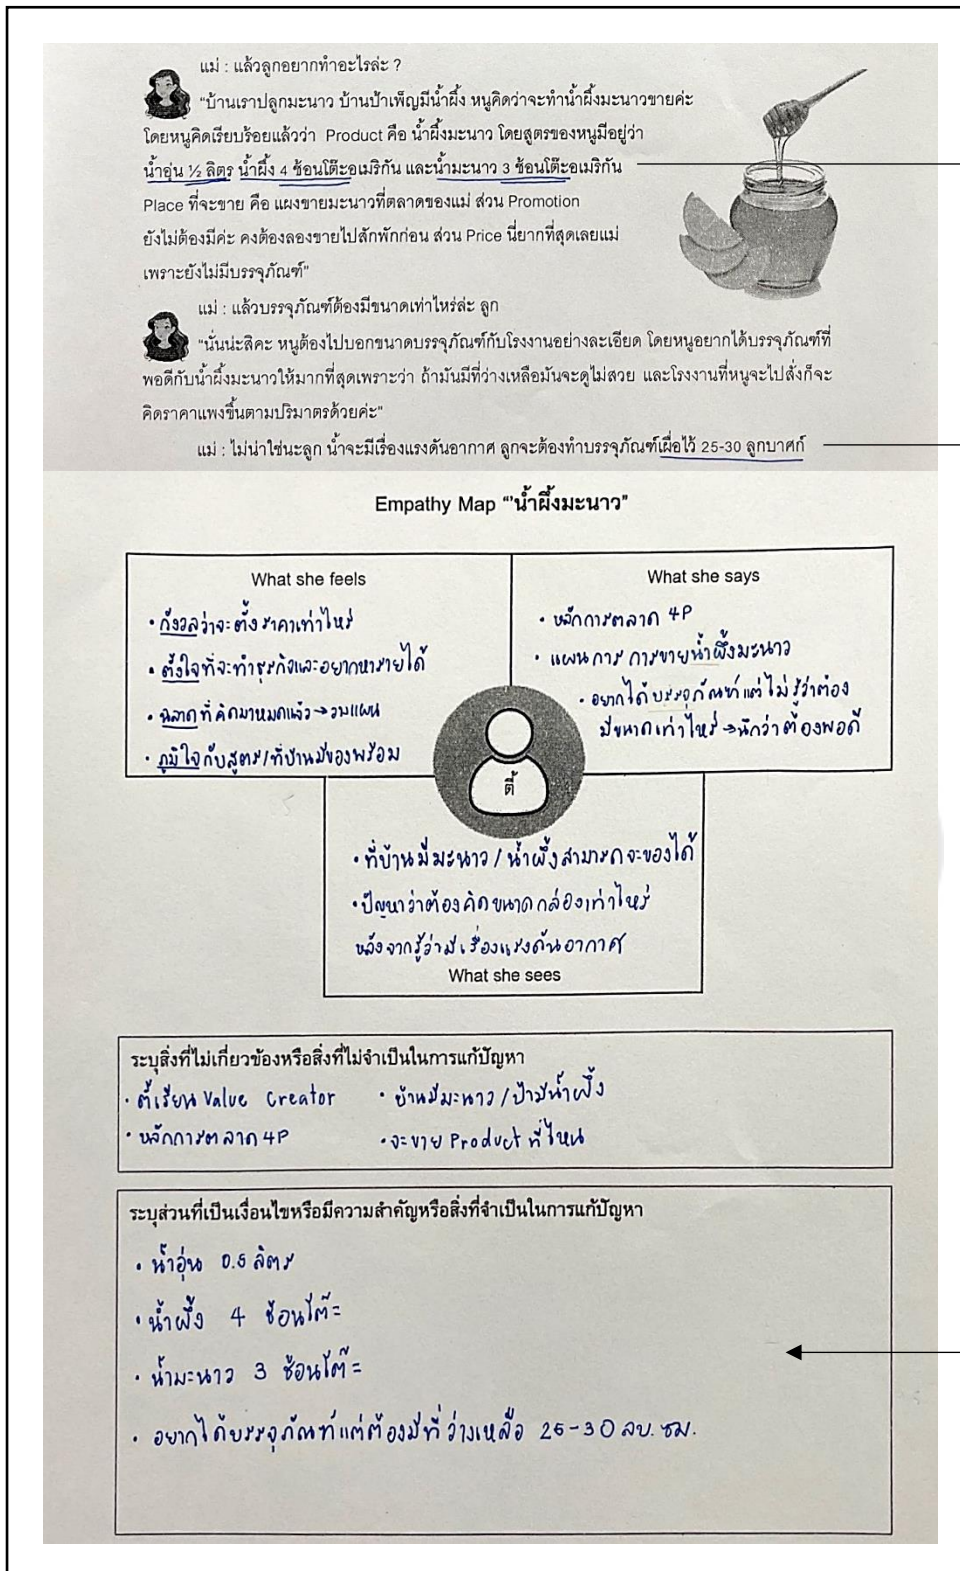 แม่ : แล้วลูกอยากทำอะไรล่ะ ?
"บ้านเราปลูกมะนาว บ้านป้าเพ็ญมีน้ำผึ้ง หนูคิดว่าจะทำน้ำผึ้งมะนาวขายค่ะ
โดยหนูคิดเรียบร้อยแล้วว่า Product คือ น้ำผึ้งมะนาว โดยสูตรของหนูมีอยู่ว่า
น้ำอุ่น ½ ลิตร น้ำผึ้ง 4 ช้อนโต๊ะอเมริกัน และน้ำมะนาว 3 ช้อนโต๊ะอเมริกัน
Place ที่จะขาย คือ แผงขายมะนาวที่ตลาดของแม่ ส่วน Promotion
ยังไม่ต้องมีค่ะ คงต้องลองขายไปสักพักก่อน ส่วน Price นี่ยากที่สุดเลยแม่
เพราะยังไม่มีบรรจุภัณฑ์"
แม่ : แล้วบรรจุภัณฑ์ต้องมีขนาดเท่าไหร่ล่ะ ลูก
"นั่นน่ะสิคะ หนูต้องไปบอกขนาดบรรจุภัณฑ์กับโรงงานอย่างละเอียด โดยหนูอยากได้บรรจุภัณฑ์ที่
พอดีกับน้ำผึ้งมะนาวให้มากที่สุดเพราะว่า ถ้ามันมีที่ว่างเหลือมันจะดูไม่สวย และโรงงานที่หนูจะไปสั่งก็จะ
คิดราคาแพงขึ้นตามปริมาตรด้วยค่ะ"
แม่ : ไม่น่าใช่นะลูก น้ำจะมีเรื่องแรงดันอากาศ ลูกจะต้องทำบรรจุภัณฑ์เผื่อไว้ 25-30 ลูกบาศก์
Empathy Map "'น้ำผึ้งมะนาว"
What she feels
• กังวลว่าจะตั้งราคาเท่าไหร่
• ตั้งใจที่จะทำธุรกิจและอยากหารายได้
• ฉลาดที่คิดมาหมดแล้ว→วางแผน
• ภูมิใจกับสูตร/ที่บ้านมีของพร้อม
What she says
• หลักการตลาด 4P
• แผนการ การขายน้ำผึ้งมะนาว
• อยากได้บรรจุภัณฑ์แต่ไม่รู้ว่าต้อง
มีขนาดเท่าไหร่→นึกว่าต้องพอดี
ตี้
• ที่บ้านมีมะนาว/น้ำผึ้งสามารถจะของได้
• ปัญหาว่าต้องคิดขนาดกล่องเท่าไหร่
หลังจากรู้ว่ามีเรื่องแรงดันอากาศ
What she sees
ระบุสิ่งที่ไม่เกี่ยวข้องหรือสิ่งที่ไม่จำเป็นในการแก้ปัญหา
• ตี้เรียน Value Creator • บ้านมีมะนาว/ป้ามีน้ำผึ้ง
• หลักการตลาด 4P • จะขาย Product ที่ไหน
ระบุส่วนที่เป็นเงื่อนไขหรือมีความสำคัญหรือสิ่งที่จำเป็นในการแก้ปัญหา
• น้ำอุ่น 0.5 ลิตร
• น้ำผึ้ง 4 ช้อนโต๊ะ
• น้ำมะนาว 3 ช้อนโต๊ะ
• อยากได้บรรจุภัณฑ์แต่ต้องมีที่ว่างเหลือ 25-30 ลบ. ซม.